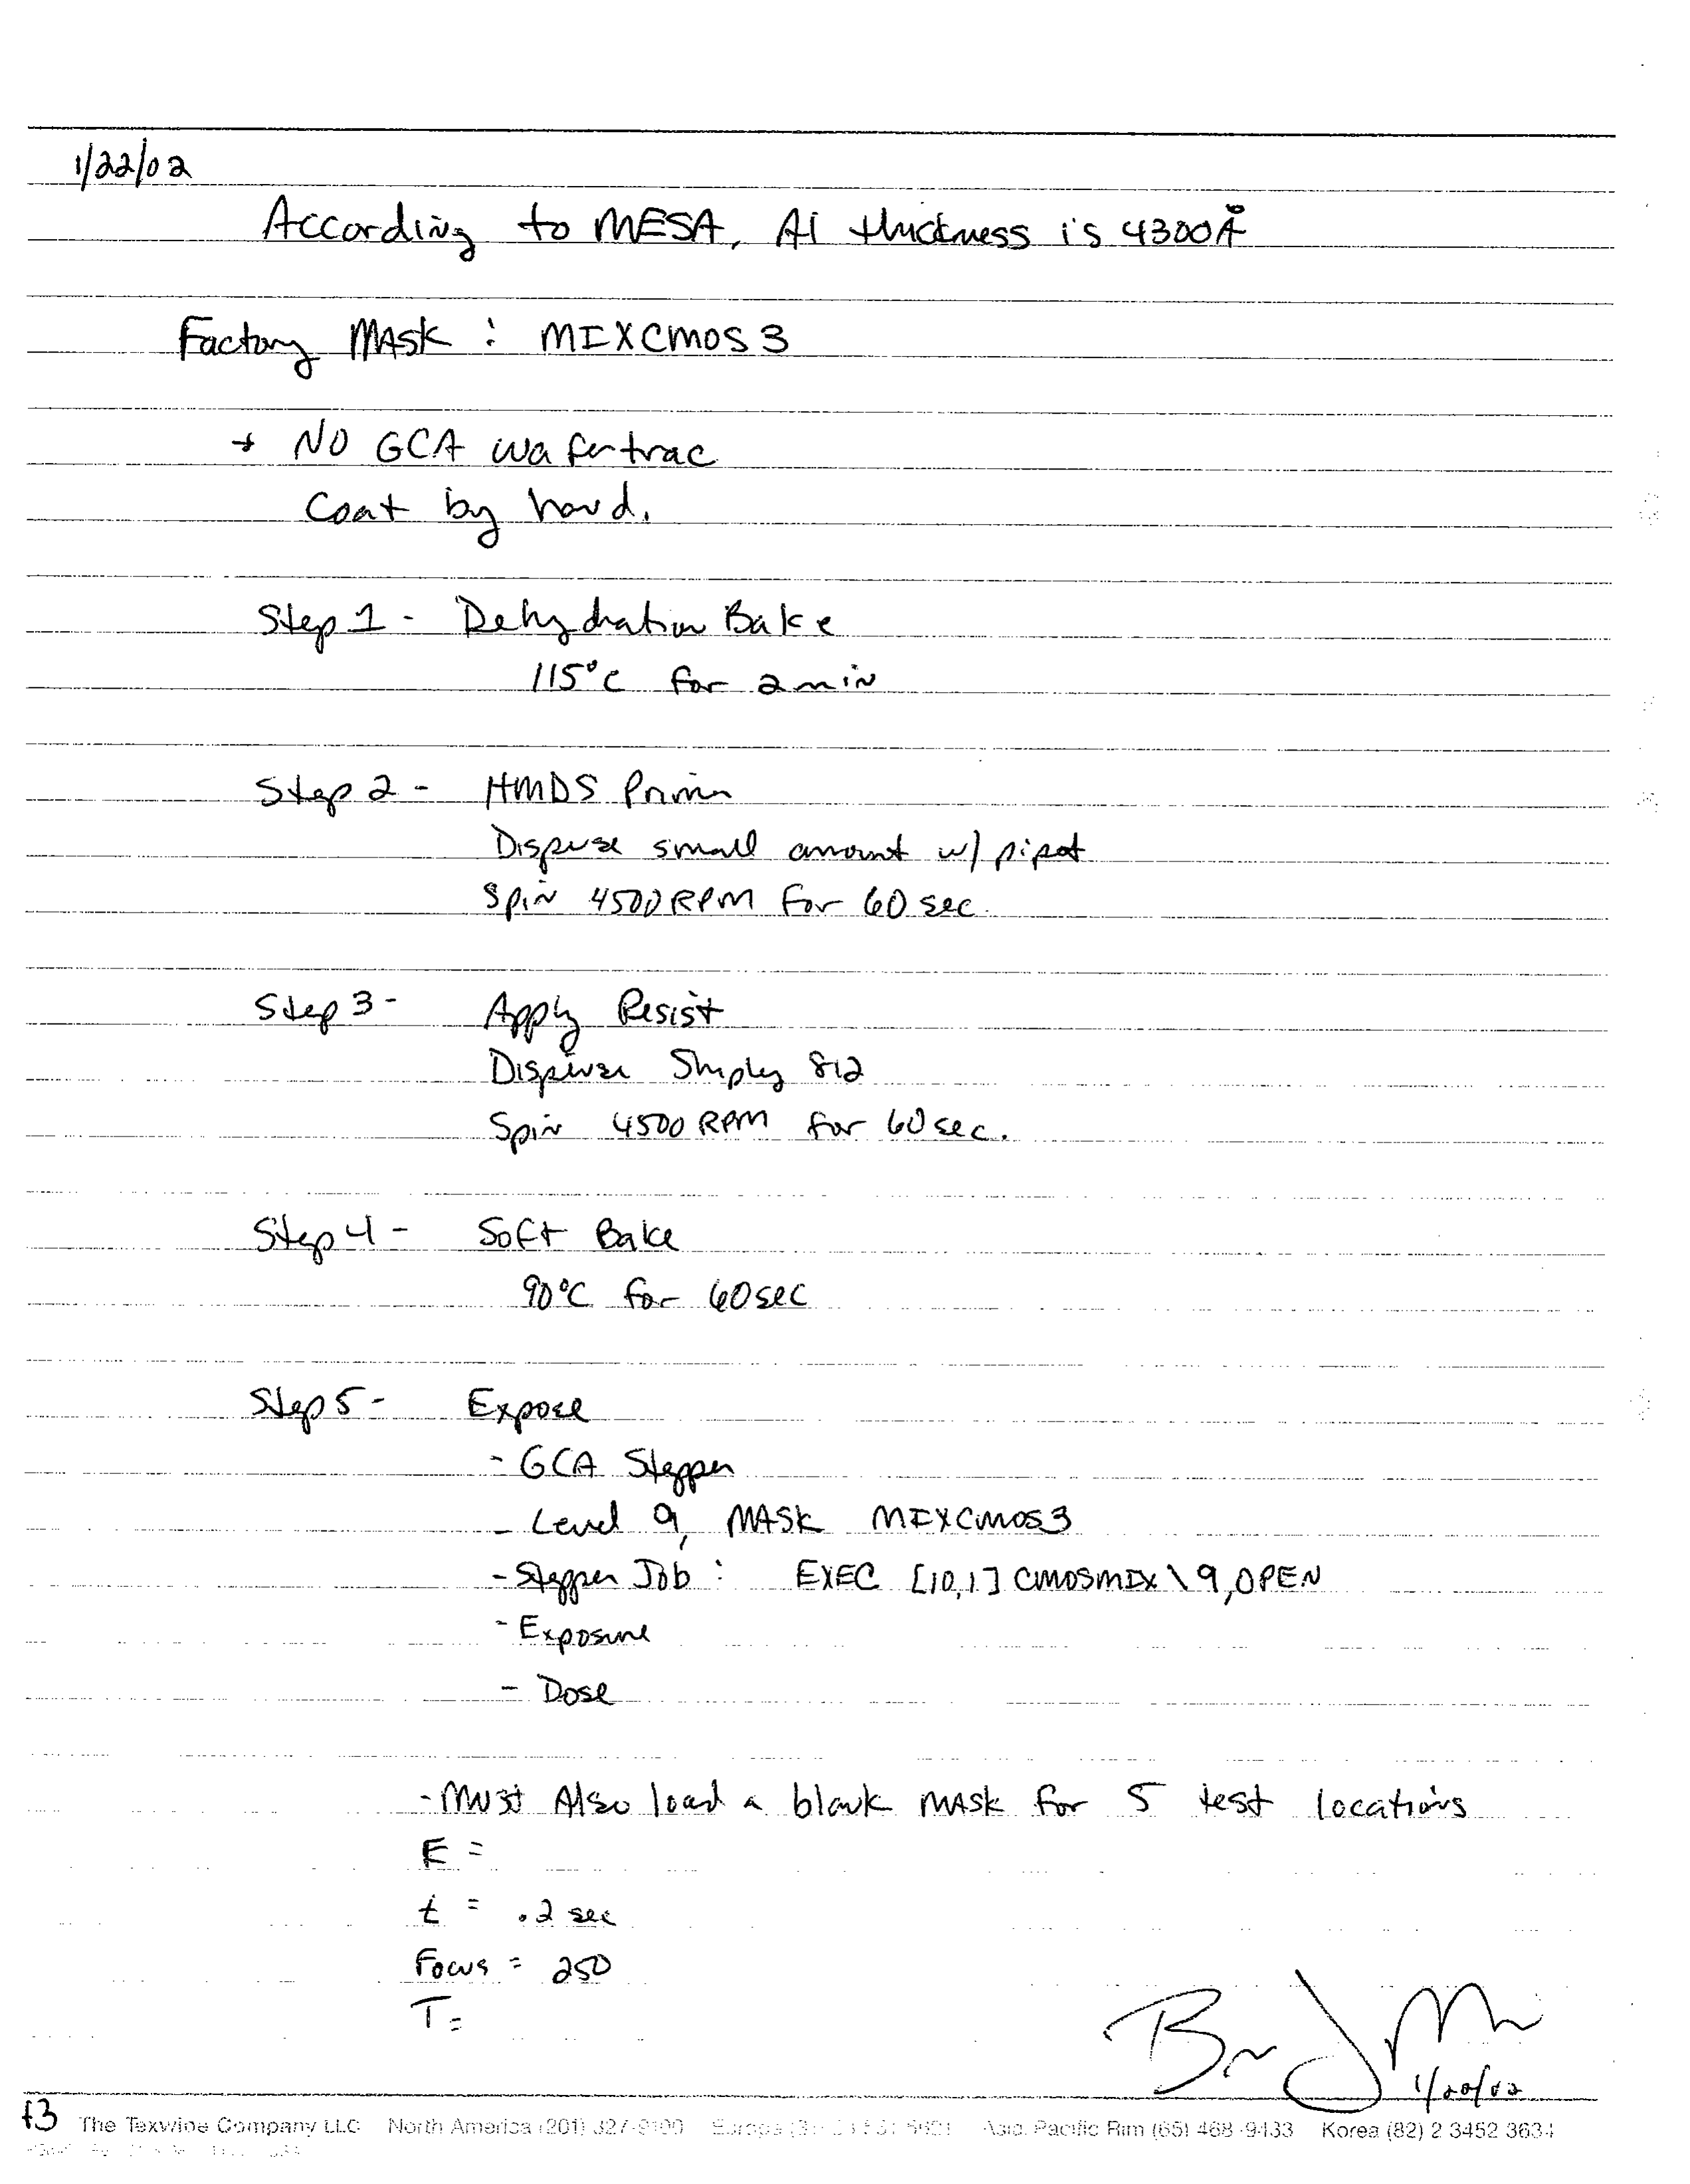 1/22/02
According to MESA, Al thickness is 4300Å
Factory MAsk : MIXCMOS3
→ NO GCA wafertrac
Coat by hand.
Step 1 - Dehydration Bake
115°C for 2 min
Step 2 - HMDS Prime
Dispense small amount w/ pipet
Spin 4500 RPM for 60 sec.
Step 3 - Apply Resist
Dispense Shipley 812
Spin 4500 RPM for 60 sec.
Step 4 - Soft Bake
90°C for 60 sec
Step 5 - Expose
- GCA Stepper
- Level 9, MASK MIXCMOS3
- Stepper Job : EXEC [10,1] CMOSMIX\9,OPEN
- Exposure
- Dose
- Must Also load a blank MASK for 5 test locations
E =
t = .2 sec
Focus = 250
T =
13 The Texwipe Company LLC North America (201) 327-9100 Asia Pacific Rim (65) 468-9433 Korea (82) 2 3452 3634